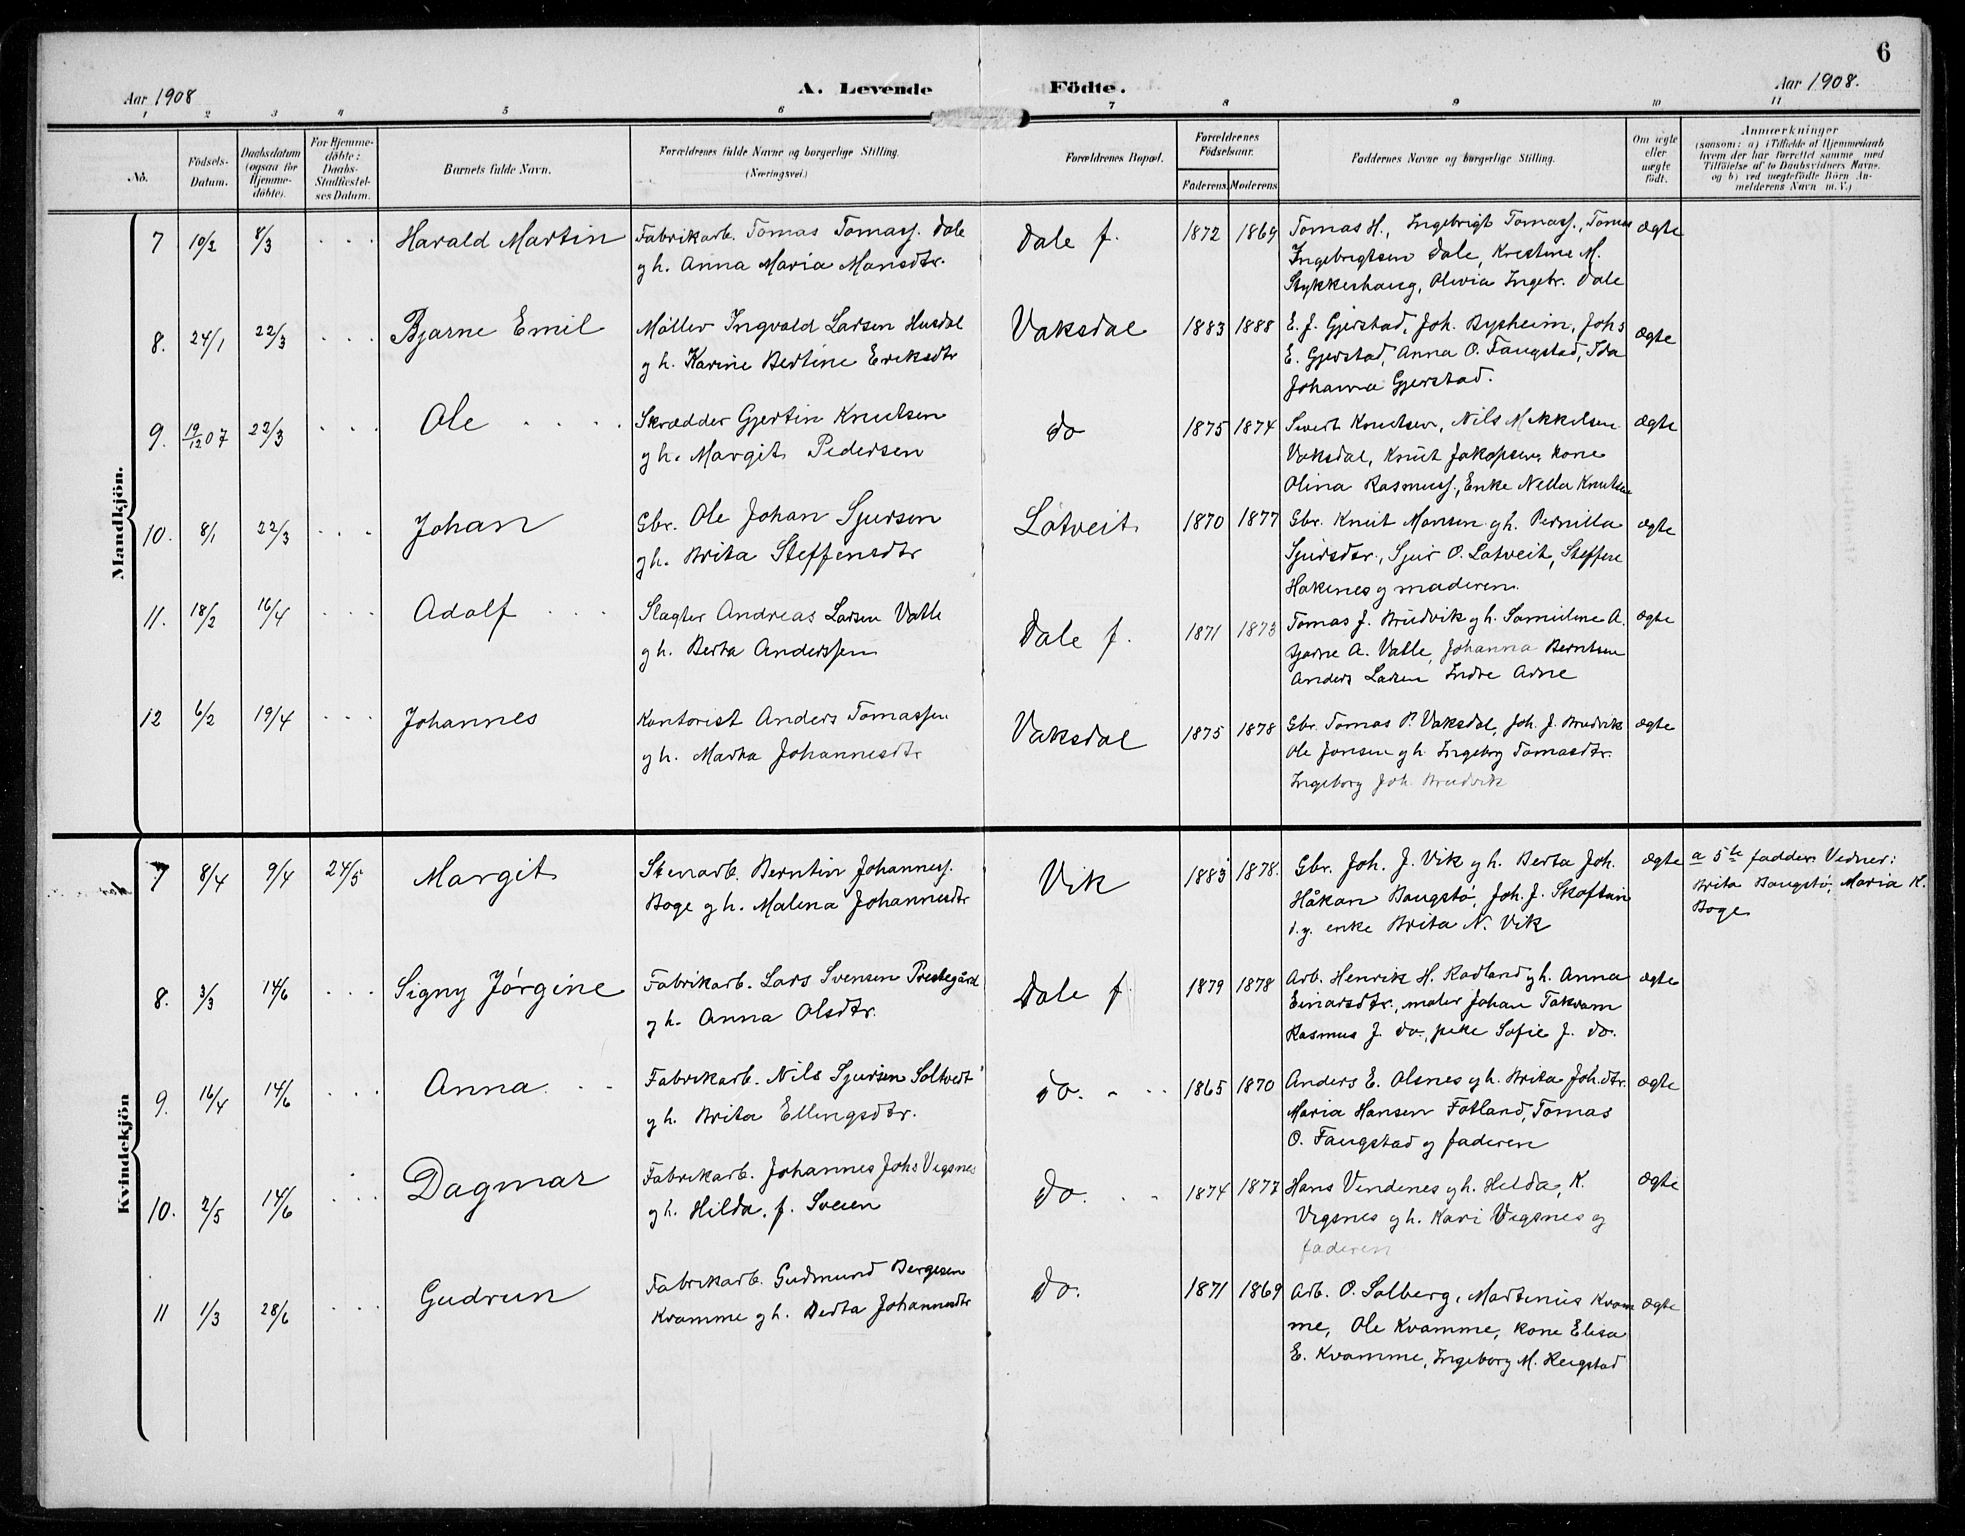 6
Aar 1908 A. Levende Födte. Aar 1908.
1 2 3 4 5 6 7 8 9 10 11
No.
Födsels-
Datum.
Daabsdatum
(ogsaa for
Hjemme-
døbte).
For Hjemme-
døbte:
Daabs-
Stadfæstel-
ses Datum.
Barnets fulde Navn.
Forældrenes fulde Navne og borgerlige Stilling.
(Næringsvei.)
Forældrenes Bopæl.
Forældrenes
Födselsaar.
Faderens. Moderens.
Faddernes Navne og borgerlige Stilling.
Om ægte
eller
uægte
født.
Anmærkninger
(saasom: a) i Tilfælde af Hjemmedaab
hvem der har forrettet samme, med
Tilföielse af to Daabsvidners Navne,
og b) ved uægtefödte Börn An-
melderens Navn m. V.)
Mandkjön.
7 10/2 8/3 . . . Harald Martin Fabrikarb. Tomas Tomass. Dale Dale f. 1872 1869 Tomas H., Ingebrigt Tomass., Tomas ægte
gh. Anna Maria Monsdtr. Ingebrigtsen Dale, Kristine M.
Stykkeshaug, Olivia Ingebr. Dale
8. 24/1 22/3 . . . Bjarne Emil Møller Ingvald Larsen Husdal Vaksdal 1883 1888 E. J. Gjerstad, Joh. Bysheim, Johs ægte
gh. Karine Bertine Eriksdtr E. Gjerstad, Anna O. Faugstad, Ida
Johanna Gjerstad.
9. 19/12 07 22/3 . . . Ole . . . . Skrædder Gjertin Knutsen do 1875 1874 Sivert Knutsen, Nils Mikkelsen ægte
gh. Margit Pedersen Vaksdal, Knut Jakopsen, kone
Olina Rasmuss., Enke Nella Knutsen
10. 8/1 22/3 . . . Johan Gbr. Ole Johan Sjursen Låtveit 1870 1877 Gbr. Knut Monsen gh. Pernilla ægte
gh. Brita Steffensdtr Sjursdtr., Sjur O. Låtveit, Steffen
Hakenes g maderen.
11. 18/2 16/4 . . . Adolf . . . Slagter Andreas Larsen Valle Dale f. 1871 1873 Tomas J. Brudvik gh. Samuline A. ægte
gh. Berta Anderssen Bjarne A. Valle, Johanna Berntsen
Anders Larsen Indre Arne
12 6/2 19/4 . . . Johannes Kontorist Anders Tomassen Vaksdal 1875 1878 Gbr. Tomas P. Vaksdal, Joh. J. Brudvik ægte
gh. Marta Johannesdtr Ole Jonsen gh. Ingeborg Tomasdtr.
Ingeborg Joh. Brudvik
Kvindekjön
7 8/4 9/4 24/5 Margit Stenarb. Berntin Johanness. Vik 1883 1878. Gbr. Joh. J. Vik gh. Berta Joh. ægte a 5te fadder. Vidner:
Boge gh. Malena Johannesdtr Håkan Baugstø, Joh. J. Skaftun Brita Baugstø, Maria K.
d.y. enke Brita N. Vik Boge
8. 3/3 14/6 . . . Signy Jørgine Fabrikarb. Lars Svensen Prestegård Dale f 1879 1878 Arb. Henrik H. Rødland gh. Anna ægte
gh. Anna Olsdtr. Einarsdtr., maler Johan Takvam
Rasmus J. do., pike Sofie J. do.
9. 16/4 14/6 . . . Anna . . Fabrikarb. Nils Sjursen Soltvedt do. 1865 1870 Anders E. Olsnes gh. Brita Joh.dtr. ægte
gh. Brita Ellingsdtr. Maria Hansen Fotland, Tomas
O. Faugstad g faderen
10. 2/5 14/6 . . . Dagmar Fabrikarb. Johannes Johs Vigsnes do. 1874 1877 Hans Vindenes gh. Hilda, K. ægte
gh. Hilda, f. Sveen Vigsnes gh. Kari Vigsnes g
faderen
11 1/3 28/6 . . . Gudrun Fabrikarb. Gudmund Bergesen do. 1871 1869 Arb. O. Solberg, Martinus Kvam ægte
Kvamme gh. Berta Johannesdtr me, Ole Kvamme, kone Elisa
E. Kvamme, Ingeborg M. Heugstad